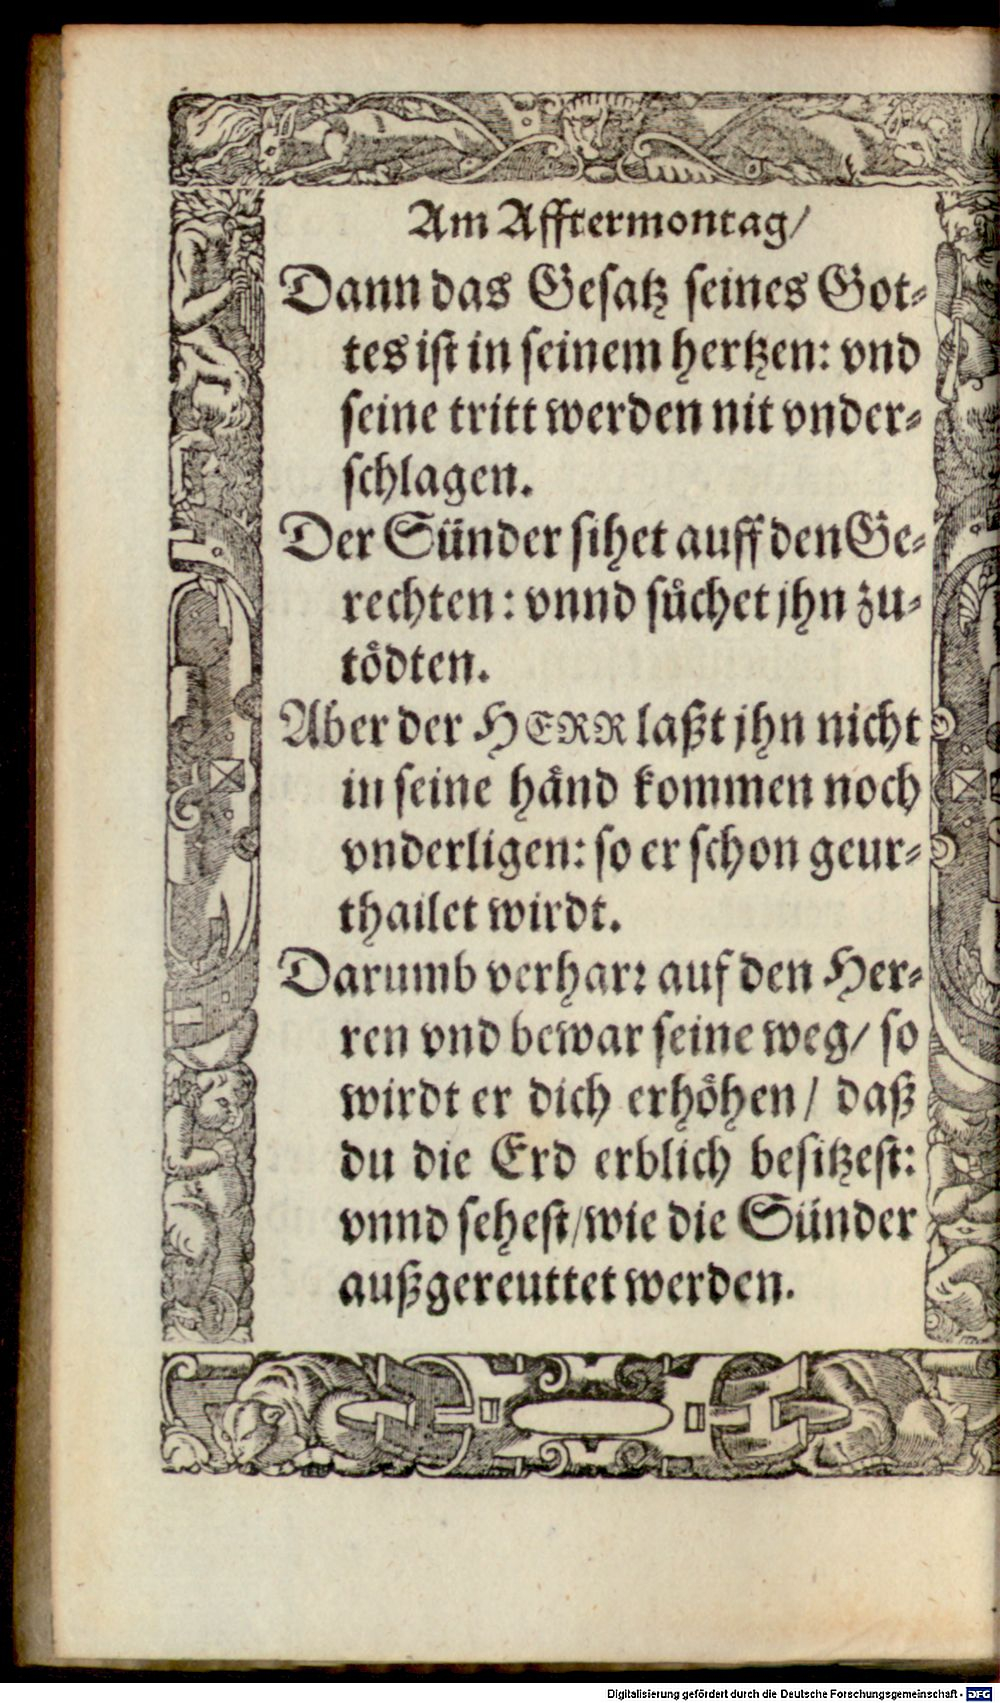 Am Afftermontag/
Dann das Gesatz seines Got-
tes ist in seinem hertzen: vnd
seine tritt werden nit vnder-
schlagen.
Der Sünder sihet auff den Ge-
rechten: vnnd sůchet jhn zu-
tödten.
Aber der HERR laßt jhn nicht
in seine händ kommen noch
vnderligen: so er schon geur-
thailet wirdt.
Darumb verharr auf den Her-
ren vnd bewar seine weg/ so
wirdt er dich erhöhen/ daß
du die Erd erblich besitzest:
vnnd sehest/wie die Sünder
außgereuttet werden.
Digitalisierung gefördert durch die Deutsche Forschungsgemeinschaft - DFG